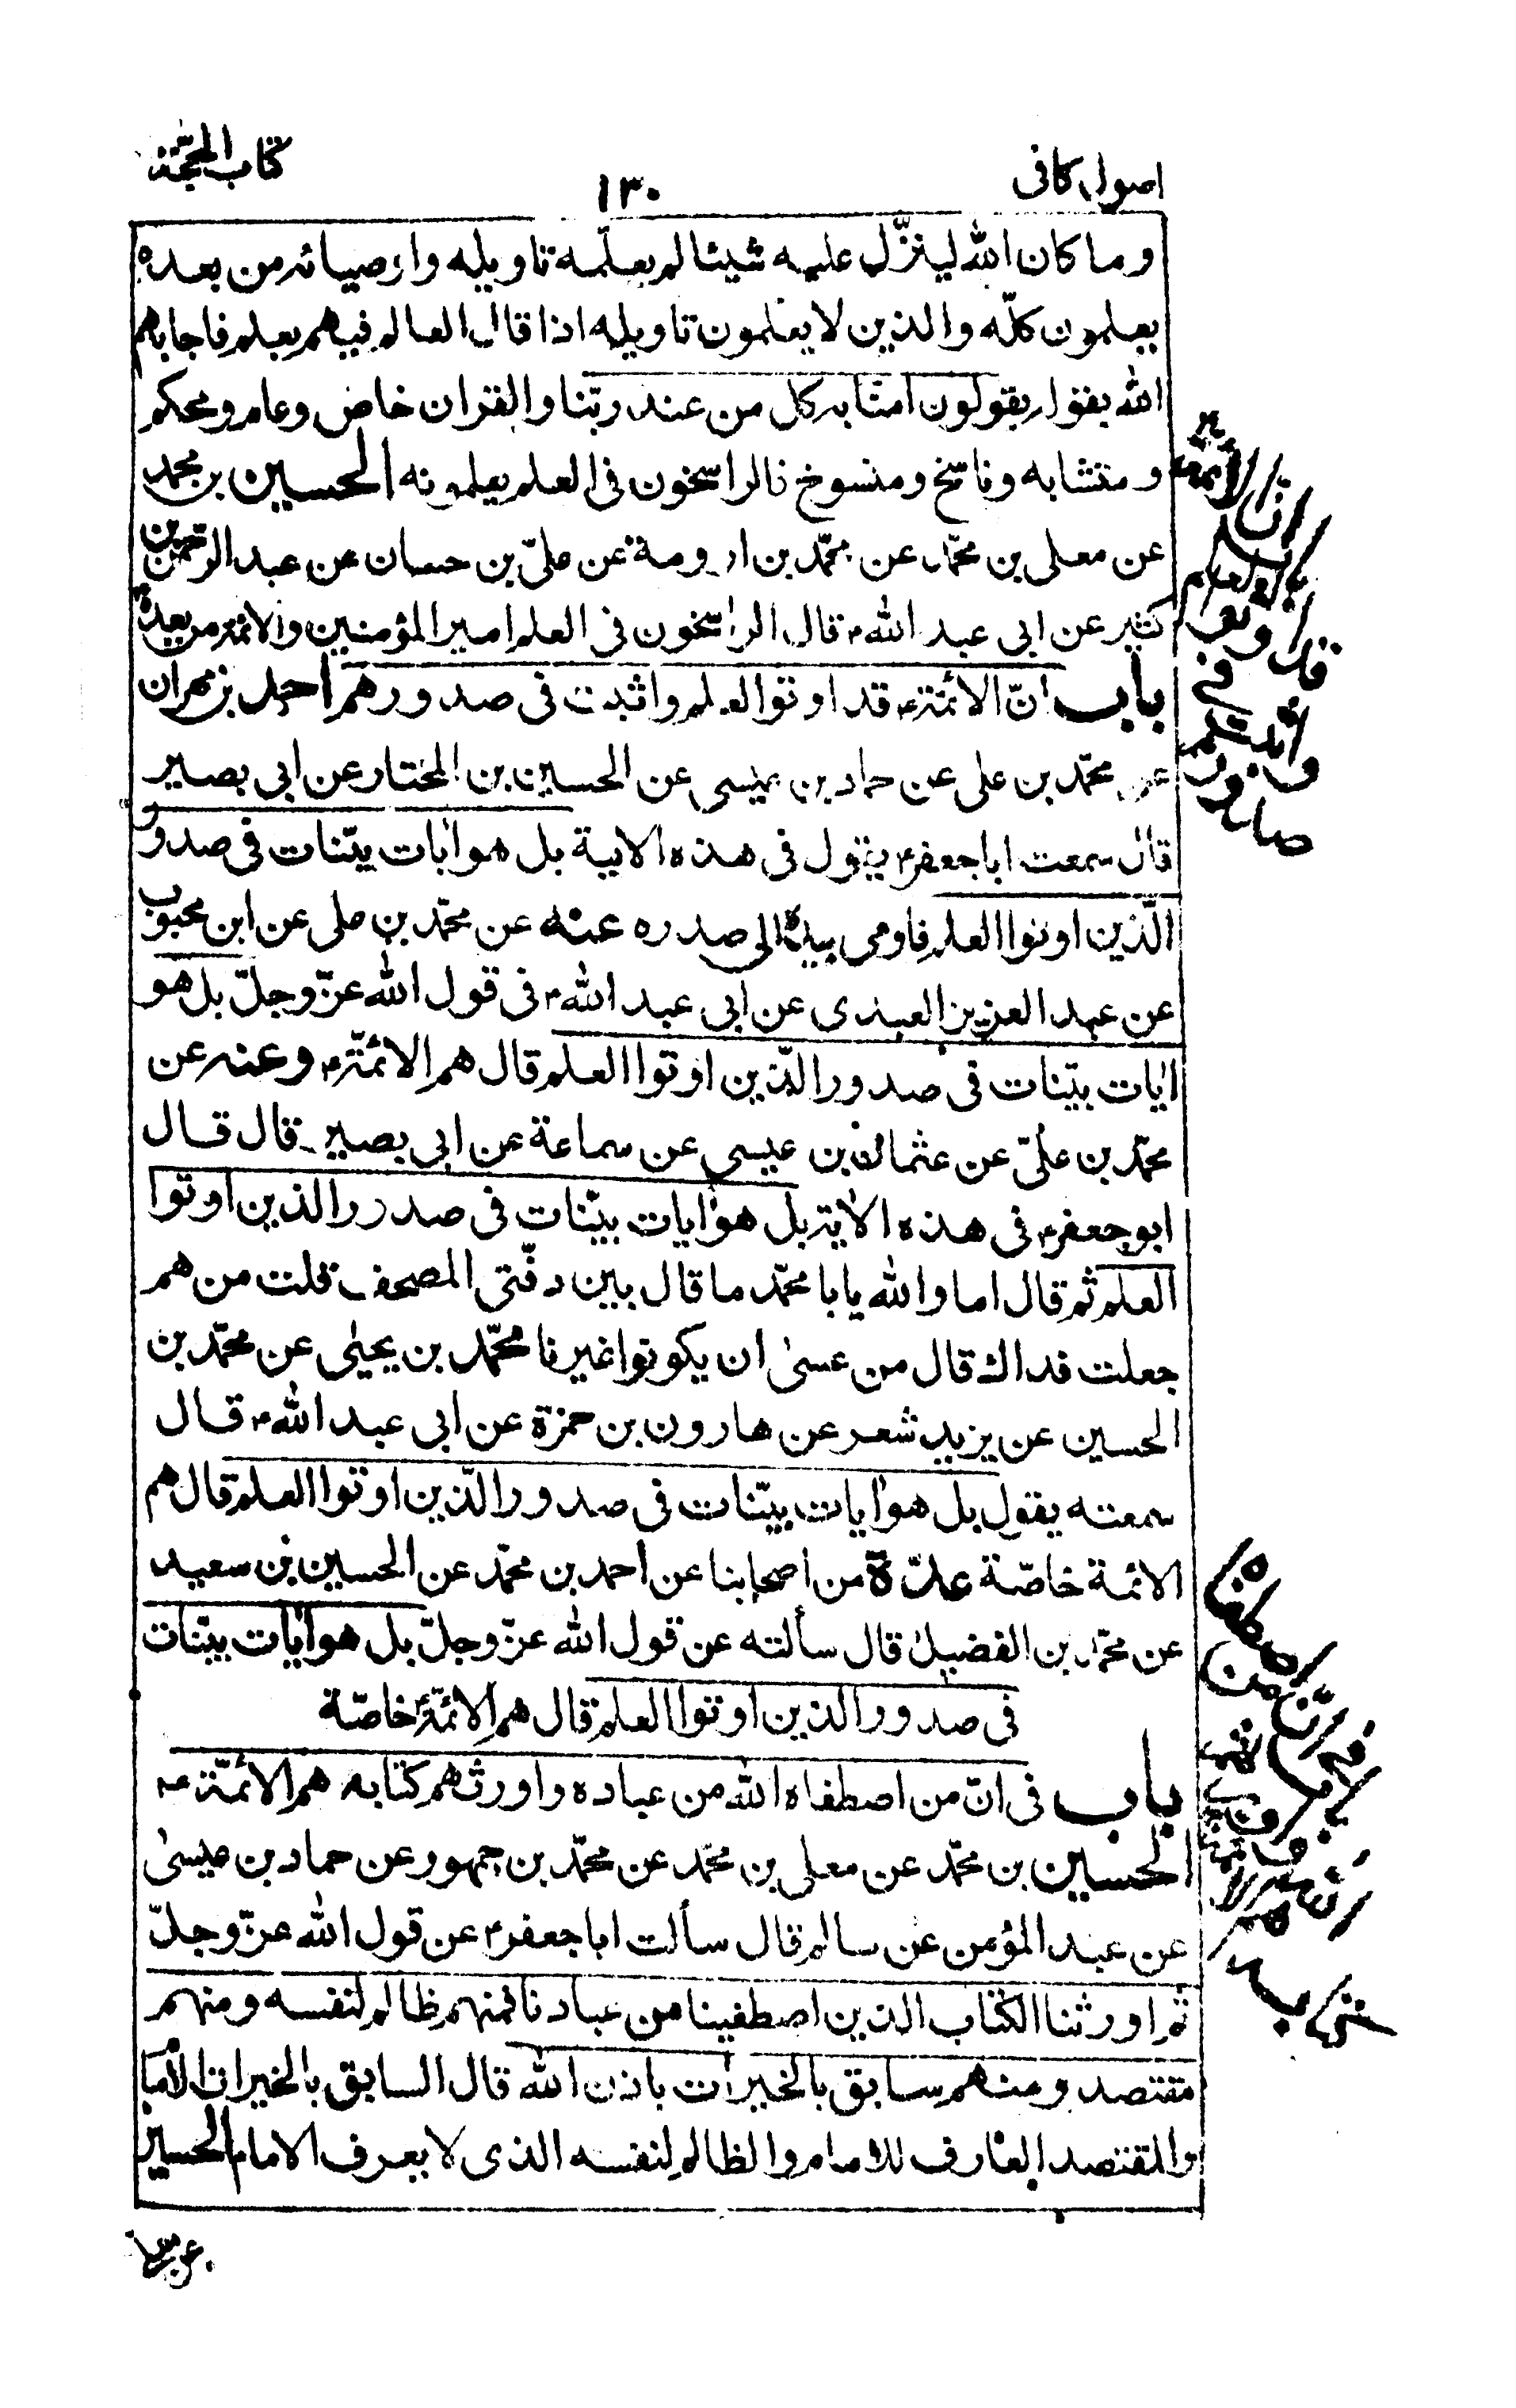 اصول كافى
١٣٠
كتاب الحجّة
وما كان الله لينزّل عليه شيئا لم يعلّمه تاويله واوصيائه من بعده
يعلمون كلّه والذين لا يعلمون تاويله اذا قال العالم فيهم بعلم فاجابهم
الله بقوله يقولون امنّا به كل من عند ربّنا والقران خاص وعام ومحكم
ومتشابه وناسخ ومنسوخ فالراسخون فى العلم يعلمونه الحسين بن محمد
عن معلى بن محمّد عن محمّد بن اورمة عن علىّ بن حسان عن عبد الرحمن بن
كثير عن ابى عبد الله ع قال الراسخون فى العلم امير المؤمنين والائمة من بعده ع
باب انّ الائمّة ع قد اوتوا العلم واثبت فى صدورهم احمد بن مهران
عن محمّد بن على عن حماد بن عيسى عن الحسين بن المختار عن ابى بصير
قال سمعت ابا جعفر ع يقول فى هذه الاية بل هو ايات بيّنات فى صدور
الّذين اوتوا العلم فاومى بيده الى صدره عنه عن محمّد بن على عن ابن محبوب
عن عبد العزيز العبدى عن ابى عبد الله ع فى قول الله عزّ وجلّ بل هو
ايات بيّنات فى صدور الّذين اوتوا العلم قال هم الائمّة ع وعنه عن
محمّد بن علىّ عن عثمان بن عيسى عن سماعة عن ابى بصير قال قال
ابو جعفر ع فى هذه الاية بل هو ايات بيّنات فى صدور الذين اوتوا
العلم ثم قال اما والله يا با محمّد ما قال بين دفّتى المصحف قلت من هم
جعلت فداك قال من عسى ان يكونوا غيرنا محمّد بن يحيى عن محمّد بن
الحسين عن يزيد شعر عن هارون بن حمزة عن ابى عبد الله ع قال
سمعته يقول بل هو ايات بيّنات فى صدور الّذين اوتوا العلم قال هم
الائمة خاصّة عدّة من اصحابنا عن احمد بن محمّد عن الحسين بن سعيد
عن محمّد بن الفضيل قال سألته عن قول الله عزّ وجلّ بل هو ايات بيّنات
فى صدور الذين اوتوا العلم قال هم الائمّة ع خاصّة
باب فى انّ من اصطفاه الله من عباده واورثهم كتابه هم الائمّة ع
الحسين بن محمّد عن معلى بن محمّد عن محمّد بن جمهور عن حماد بن عيسى
عن عبد المؤمن عن سالم قال سألت ابا جعفر ع عن قول الله عزّ وجلّ
ثم اورثنا الكتاب الذين اصطفينا من عبادنا فمنهم ظالم لنفسه ومنهم
مقتصد ومنهم سابق بالخيرات باذن الله قال السابق بالخيرات الامام
والمقتصد العارف للامام والظالم لنفسه الذى لا يعرف الامام الحسين
ان الائمة
قد اوتوا
العلم
واثبت فى
صدورهم